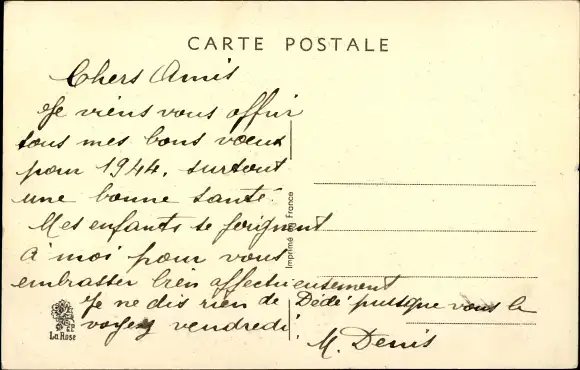 CARTE POSTALE
Chers Amis
Je viens vous offrir
tous mes bons voeux
pour 1944, surtout
une bonne santé.
Mes enfants se joignent
à moi pour vous
embrasser bien affectueusement
Je ne dis rien de Dédé puisque vous le
voyez vendredi.
M. Denis
Imprimé en France
La Rose